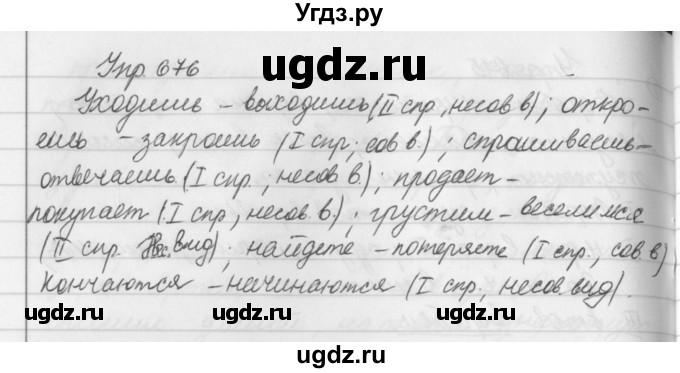 Угдз.ру
ugdz.ru
Упр. 676
Уходишь – выходишь (II спр, несов в); откро-
ешь – закроешь (I спр; сов в.); спрашиваешь –
отвечаешь (I спр.; несов в.); продает –
покупает (I спр, несов. в.); грустим – веселимся
(II спр. Нес. вид); найдете – потеряете (I спр., сов. в)
Кончаются – начинаются (I спр., несов вид).
ugdz.ru ugdz.ru ugdz.ru
ugdz.ru